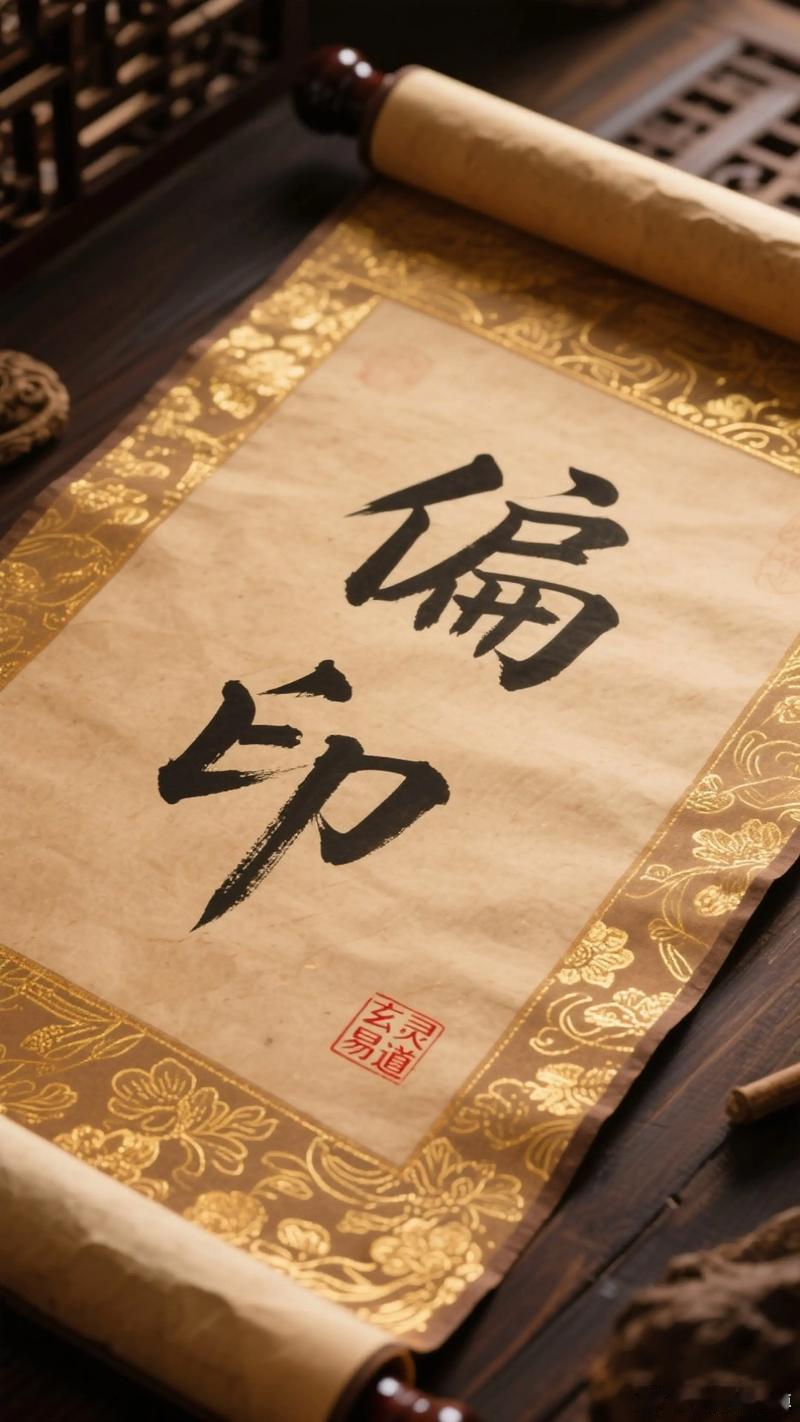 偏
印
玄灵
易道